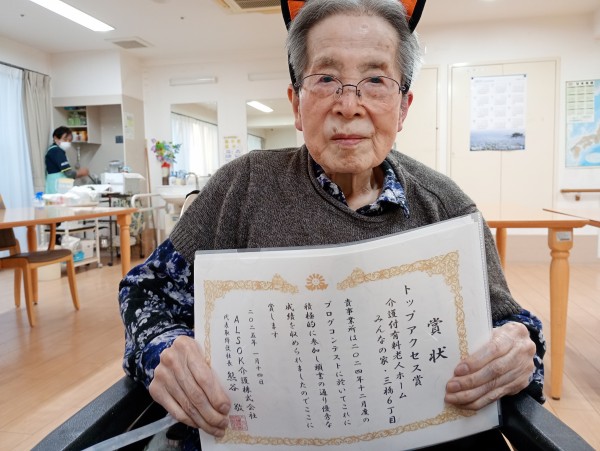 賞状
トップアクセス賞
介護付有料老人ホーム
みんなの家・三橋6丁目
貴事業所は二〇二四年十二月度の
ブログコンテストに於いてこれに
積極的に参加し頭書の通り優秀な
成績を収められましたのでここに
賞します
二〇二五年 一月十四日
ALSOK介護株式会社
代表取締役社長 熊谷 敬